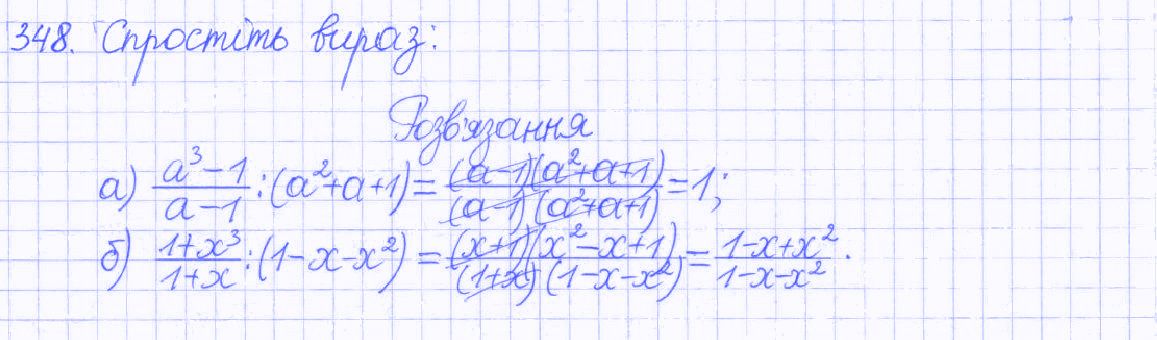 348. Спростіть вираз:
Розв'язання
а) \frac{a^3-1}{a-1}:(a^2+a+1)=\frac{(a-1)(a^2+a+1)}{(a-1)(a^2+a+1)}=1;
б) \frac{1+x^3}{1+x}:(1-x-x^2)=\frac{(x+1)(x^2-x+1)}{(1+x)(1-x-x^2)}=\frac{1-x+x^2}{1-x-x^2}.